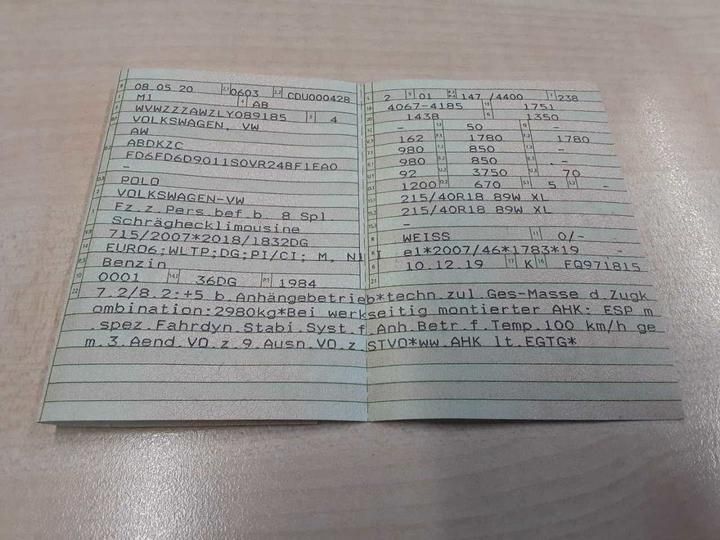 08.05.20 0603 CDU000428
M1 AB
WVWZZZAWZLY089185 4
VOLKSWAGEN, VW
AW
ABDKZC
FD6FD6D9011S0VR248F1EA0
-
POLO
VOLKSWAGEN-VW
Fz.z.Pers.bef.b. 8 Spl
Schräghecklimousine
715/2007*2018/1832DG
EURO6;WLTP;DG;PI/CI; M, N1 I
Benzin
0001 36DG 1984
2 01 147 /4400 238
4067-4185 1751
1438 1350
- 50 -
162 1780 1780
980 850 -
980 850 -
92 3750 70
1200 670 5 -
215/40R18 89W XL
215/40R18 89W XL
-
WEISS 0/-
e1*2007/46*1783*19 -
10.12.19 K FQ971815
7.2/8.2:+5 b.Anhängebetrieb*techn.zul.Ges-Masse d.Zugk
ombination:2980kg*Bei werkseitig montierter AHK: ESP m
.spez.Fahrdyn.Stabi.Syst.f.Anh.Betr.f.Temp.100 km/h ge
m.3.Aend.VO.z.9.Ausn.VO.z.STVO*ww.AHK lt.EGTG*